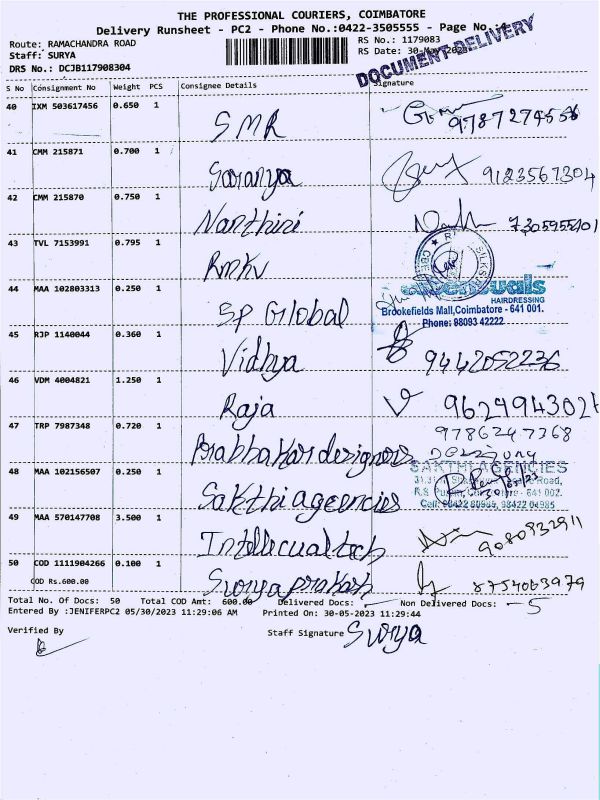 THE PROFESSIONAL COURIERS, COIMBATORE
Delivery Runsheet - PC2 - Phone No.:0422-3505555 - Page No.:4
DOCUMENT DELIVERY
Route: RAMACHANDRA ROAD RS No.: 1179083
Staff: SURYA RS Date: 30-May-2023
DRS No.: DCJB117908304
S No Consignment No Weight PCS Consignee Details Signature
40 IXM 503617456 0.650 1 SMR
41 CMM 215871 0.700 1 Saranya 9123567304
42 CMM 215870 0.750 1 Nanthini
43 TVL 7153991 0.795 1 Rmkv
44 MAA 102803313 0.250 1 SP Global
HAIRDRESSING
Brookefields Mall, Coimbatore - 641 001.
Phone: 98093 42222
45 RJP 1140044 0.360 1 Vidhya 9442052236
46 VDM 4004821 1.250 1 Raja
47 TRP 7987348 0.720 1 Prabhakar designers 9786247368
48 MAA 102156507 0.250 1 Sakthi ageencies
SAKTHI AGENCIES
49 MAA 570147708 3.500 1 Intellecualtech 9080932911
50 COD 1111904266 0.100 1 Surya prakash 8754063979
COD Rs.600.00
Total No. Of Docs: 50 Total COD Amt: 600.00 Delivered Docs: Non Delivered Docs: - 5
Entered By :JENIFERPC2 05/30/2023 11:29:06 AM Printed On: 30-05-2023 11:29:44
Verified By Staff Signature Surya